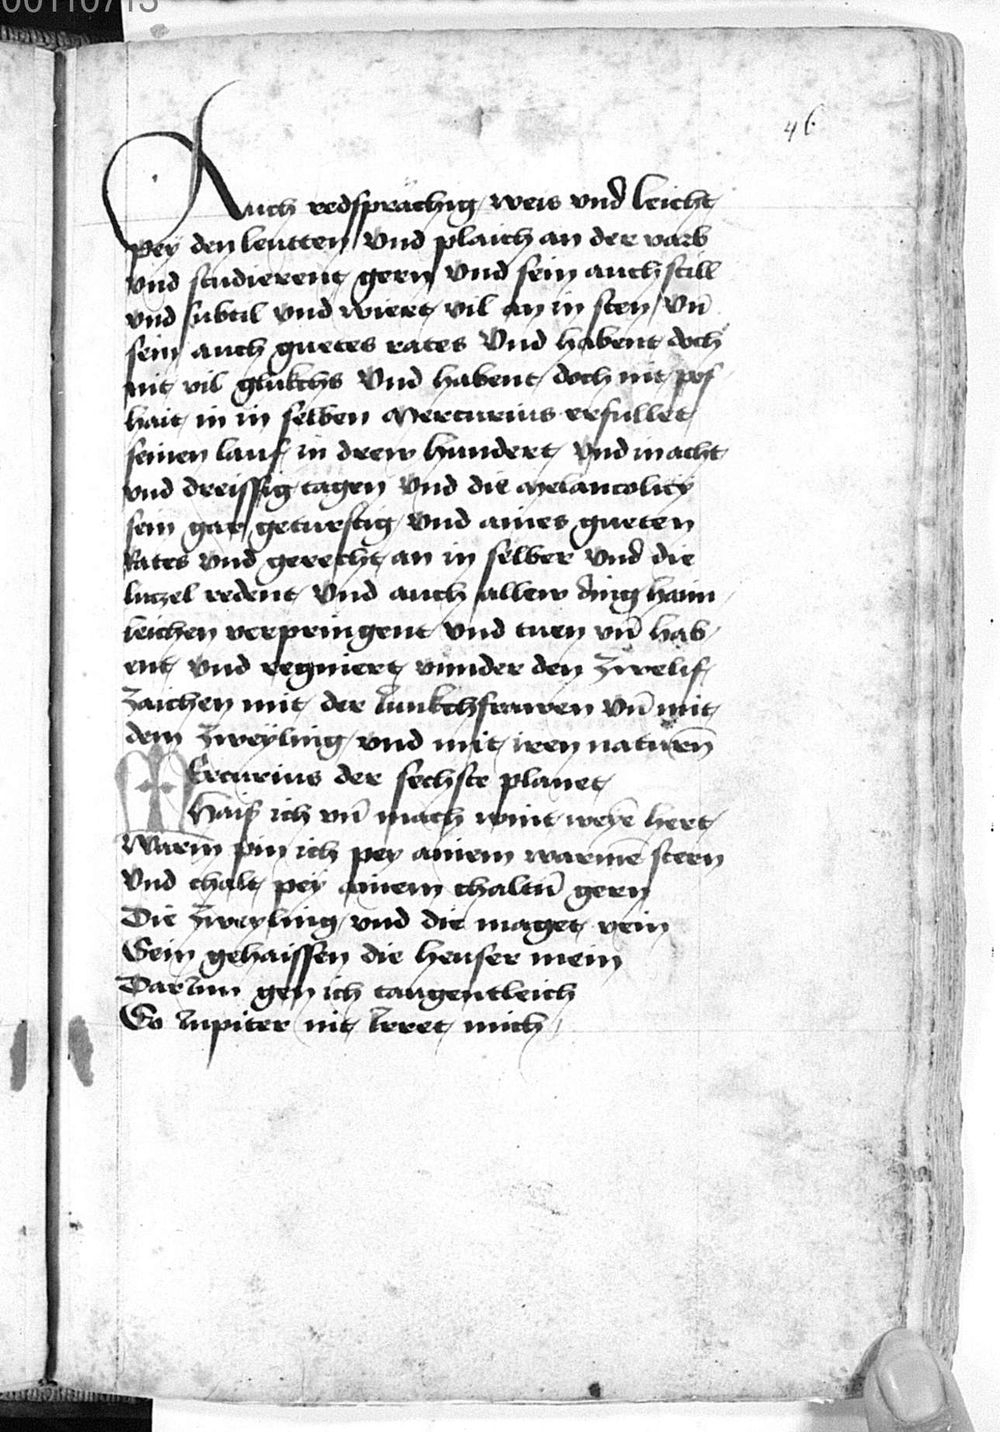 00110713
46
Auch redsprächig weis vnd leicht
pey den leutten vnd plaich an der varb
vnd studierent gern vnd sein auch still
vnd subtil vnd wiert vil an in sten vn̄
sein auch guetes rates Vnd habent doch
nit vil glukchs Vnd habent doch nit pos
hait in in selben Mercurius erfullet
seinen lauf in drew hundert Vnd in acht
vnd dreissig tagen Vnd die melancolicy
sein gar geturstig Vnd aines gueten
Rates Vnd gerecht an in selber Vnd die
luczel redent Vnd auch allew ding haim
leichen verpringent Vnd tuen vn̄ hab
ent Vnd regniert vnnder den Zwelif
Zaichen mit der Junkchfrawen Vn̄ mit
dem Zweyling vnd mit iren naturn̄
Mercurius der sechste planet
Hais ich vn̄ mach wint weyē hert
Warm pin ich pey ainem warmē stern
Vnd chalt pey ainem chaltn̄ gern
Die Zweyling vnd die maget rein
Sein gehaissen die heuser mein
Darumb gen ich taugentleich
So Jupiter nit Jrret mich